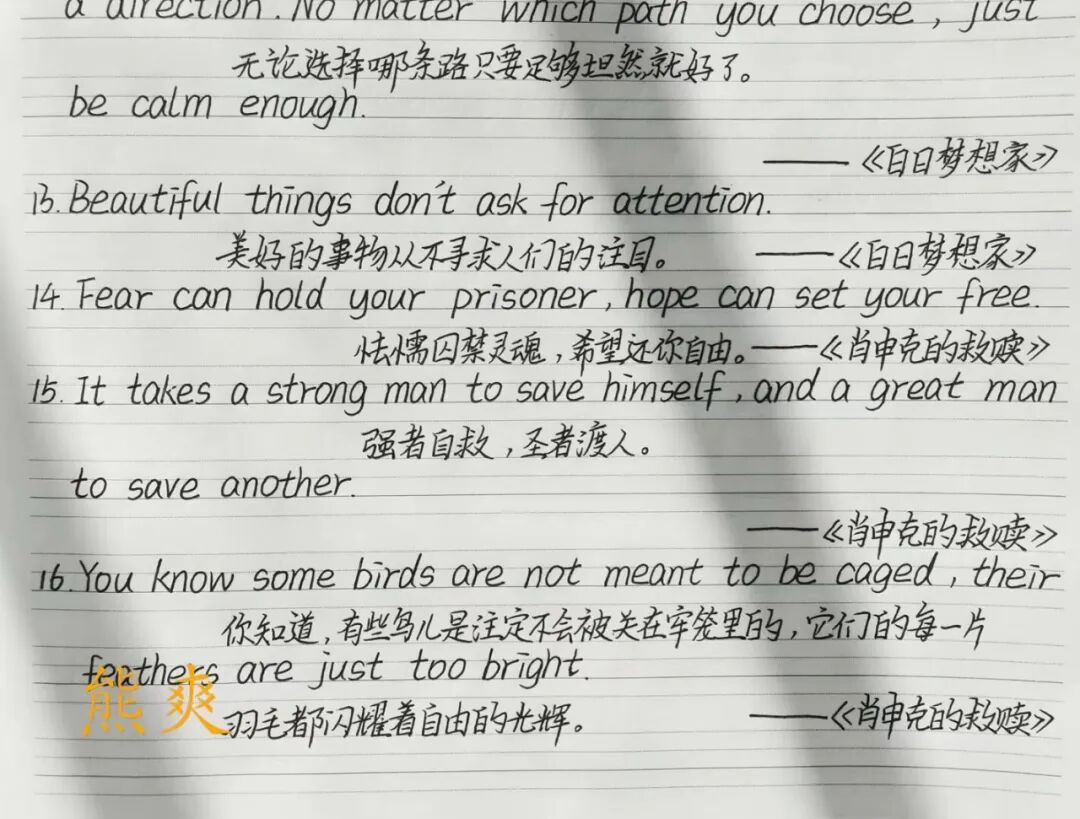 a direction. No matter which path you choose, just
无论选择哪条路只要足够坦然就好了。
be calm enough.
——《白日梦想家》
13. Beautiful things don't ask for attention.
美好的事物从不寻求人们的注目。 ——《白日梦想家》
14. Fear can hold your prisoner, hope can set your free.
怯懦囚禁灵魂，希望还你自由。——《肖申克的救赎》
15. It takes a strong man to save himself, and a great man
强者自救，圣者渡人。
to save another.
——《肖申克的救赎》
16. You know some birds are not meant to be caged, their
你知道，有些鸟儿是注定不会被关在牢笼里的，它们的每一片
feathers are just too bright.
熊爽
羽毛都闪耀着自由的光辉。 ——《肖申克的救赎》